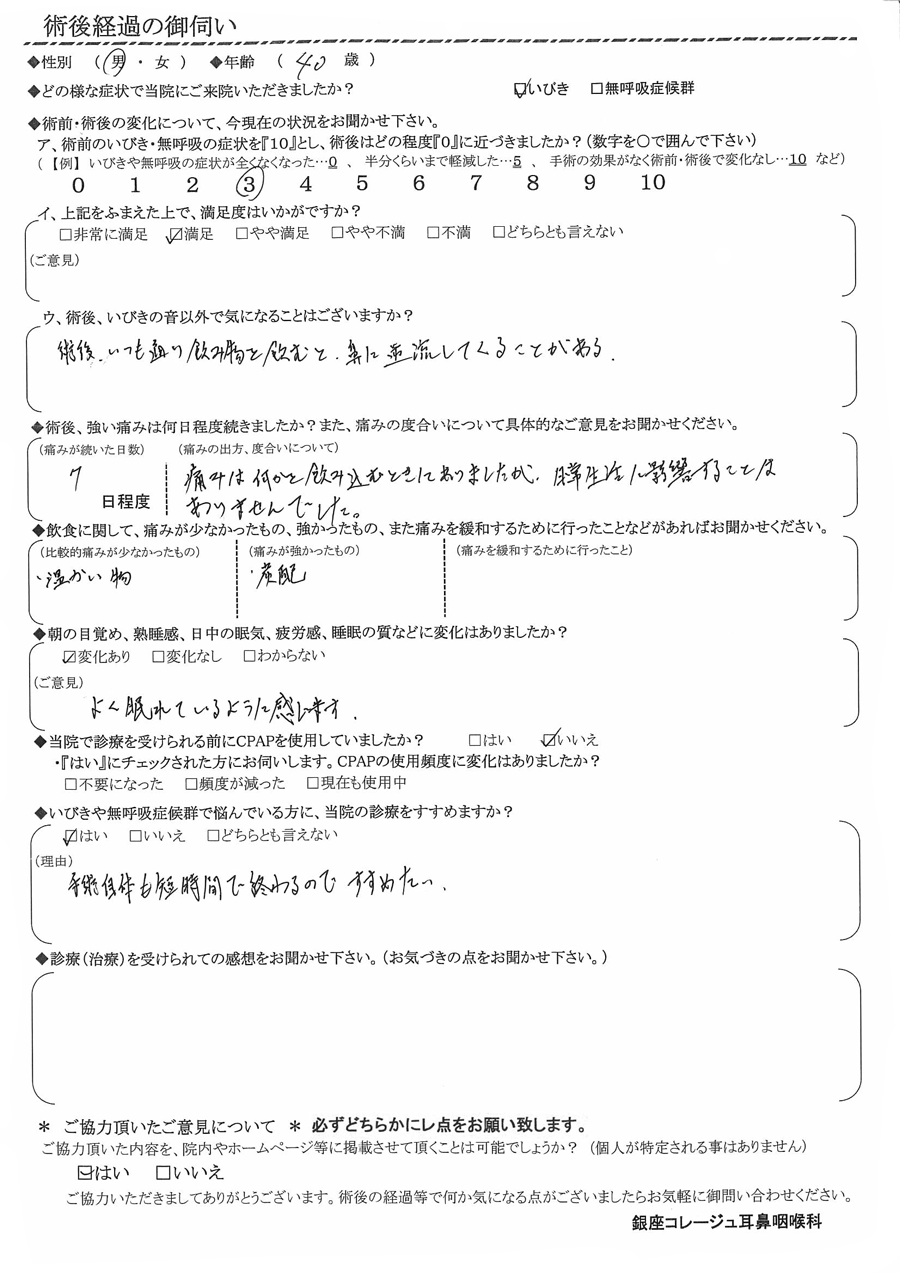 術後経過の御伺い
◆性別 （ 男 ・ 女 ） ◆年齢 （ 40 歳 ）
◆どの様な症状で当院にご来院いただきましたか？ ☑いびき □無呼吸症候群
◆術前・術後の変化について、今現在の状況をお聞かせ下さい。
ア、術前のいびき・無呼吸の症状を『10』とし、術後はどの程度『0』に近づきましたか？（数字を〇で囲んで下さい）
（ 【例】 いびきや無呼吸の症状が全くなくなった…0 、 半分くらいまで軽減した…5 、 手術の効果がなく術前・術後で変化なし…10 など）
0 1 2 3 4 5 6 7 8 9 10
イ、上記をふまえた上で、満足度はいかがですか？
□非常に満足 ☑満足 □やや満足 □やや不満 □不満 □どちらとも言えない
（ご意見）
ウ、術後、いびきの音以外で気になることはございますか？
術後、いつも通り飲み物を飲むと、鼻に逆流してくることがある.
◆術後、強い痛みは何日程度続きましたか？また、痛みの度合いについて具体的なご意見をお聞かせください。
（痛みが続いた日数） （痛みの出方、度合いについて）
7 日程度
痛みは何かを飲み込むときにありましたが、日常生活に影響することは
ありませんでした。
◆飲食に関して、痛みが少なかったもの、強かったもの、また痛みを緩和するために行ったことなどがあればお聞かせください。
（比較的痛みが少なかったもの） （痛みが強かったもの） （痛みを緩和するために行ったこと）
・温かい物 ・炭酸
◆朝の目覚め、熟睡感、日中の眠気、疲労感、睡眠の質などに変化はありましたか？
☑変化あり □変化なし □わからない
（ご意見）
よく眠れているように感じます.
◆当院で診療を受けられる前にCPAPを使用していましたか？ □はい ☑いいえ
・『はい』にチェックされた方にお伺いします。CPAPの使用頻度に変化はありましたか？
□不要になった □頻度が減った □現在も使用中
◆いびきや無呼吸症候群で悩んでいる方に、当院の診療をすすめますか？
☑はい □いいえ □どちらとも言えない
（理由）
手術自体も短時間で終わるので すすめたい.
◆診療（治療）を受けられての感想をお聞かせ下さい。（お気づきの点をお聞かせ下さい。）
＊ ご協力頂いたご意見について ＊ 必ずどちらかにレ点をお願い致します。
ご協力頂いた内容を、院内やホームページ等に掲載させて頂くことは可能でしょうか？ （個人が特定される事はありません）
☑はい □いいえ
ご協力いただきましてありがとうございます。術後の経過等で何か気になる点がございましたらお気軽に御問い合わせください。
銀座コレージュ耳鼻咽喉科